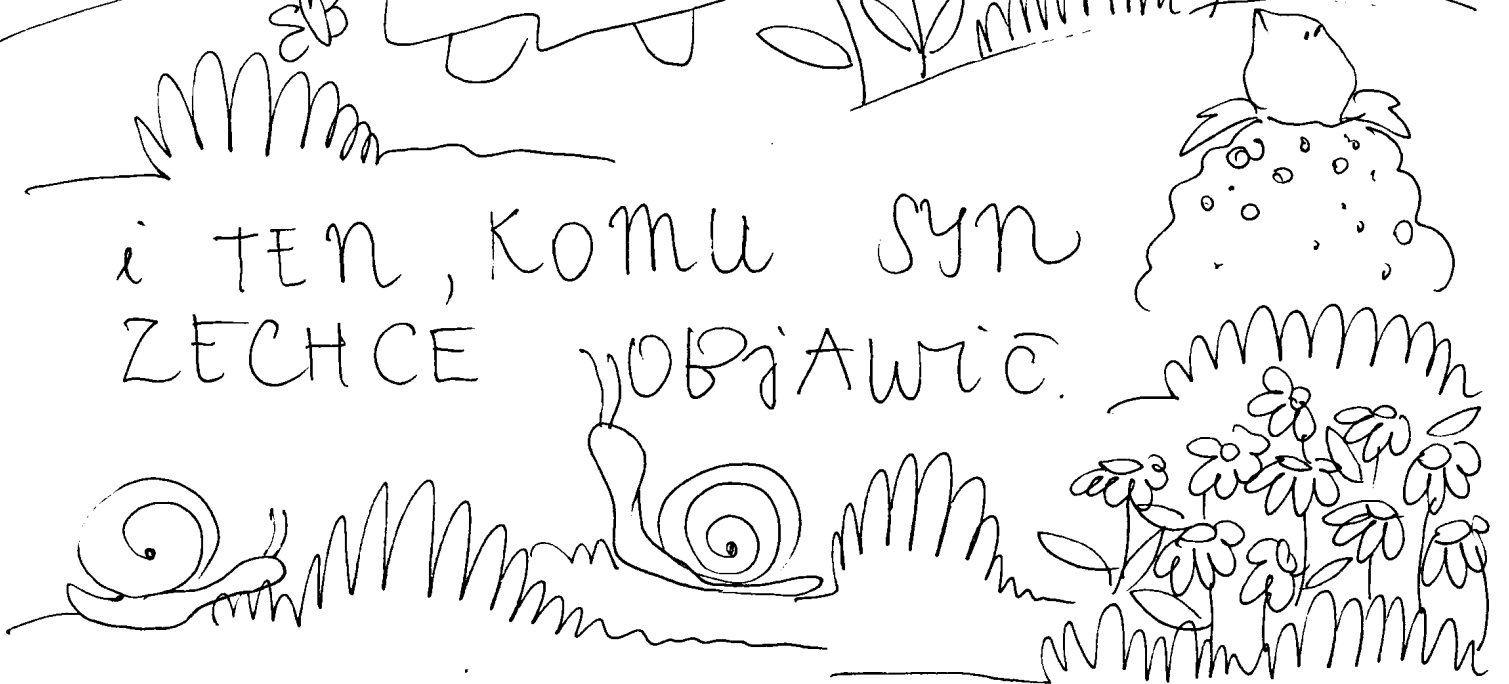 i TEN, KOMU SYN
ZECHCE OBJAWIĆ.